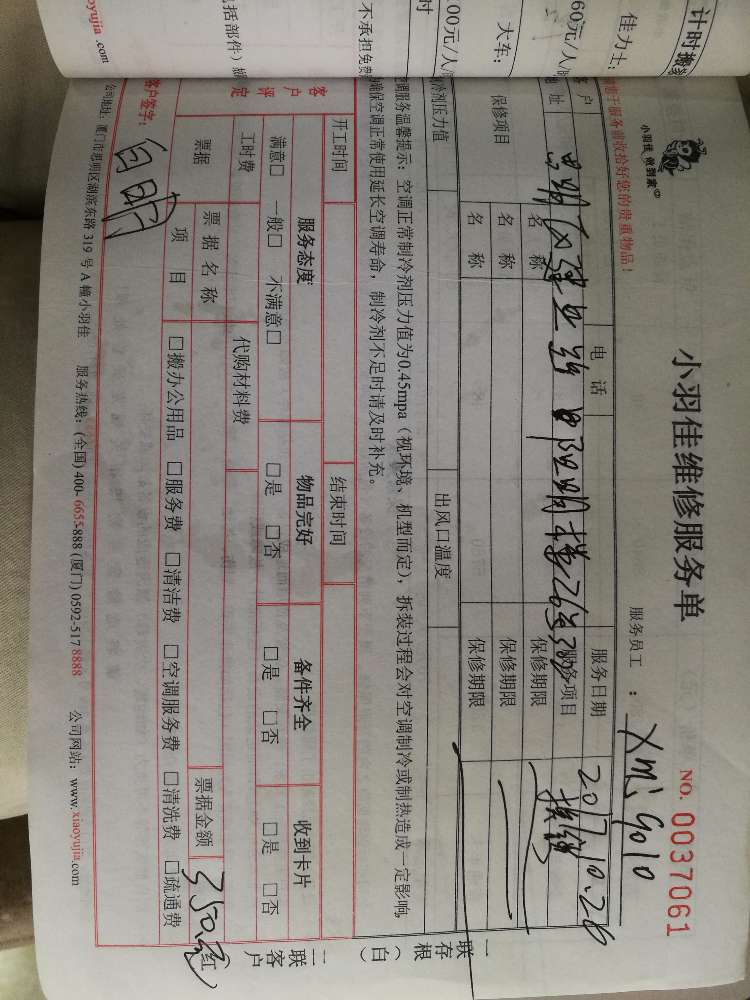 计时搬
佳力士:
60元/人/
大车:
.00元/人/
时
不承担免费
括部件)
xiaoyujia .com
小羽佳 做到家
小羽佳维修服务单
NO. 0037061
于服务前收拾好您的贵重物品!
服务员工 : Xmj 9010
客户
电 话
服务日期
2017.10.28
地 址
服务项目
保修项目
名 称
保修期限
名 称
保修期限
名 称
保修期限
制冷剂压力值
出风口温度
空调服务温馨提示: 空调正常制冷剂压力值为0.45mpa (视环境、机型而定), 拆装过程会对空调制冷或制热造成一定影响,
确保空调正常使用延长空调寿命, 制冷剂不足时请及时补充。
开工时间
结束时间
客户评定
服务态度
物品完好
备件齐全
收到卡片
满意□ 一般□ 不满意□
□是 □否
□是 □否
□是 □否
工时费
代购材料费
票据
票 据 名 称
票据金额
350元
项 目
□搬办公用品 □服务费 □清洁费 □空调服务费 □清洗费 □疏通费
客户签字:
公司地址: 厦门市思明区湖滨东路 319 号 A 幢小羽佳 服务热线: (全国) 400- 6655-888 (厦门) 0592-517 8888 公司网站: www.xiaoyujia.com
一联存根(白)
二联客户(红)